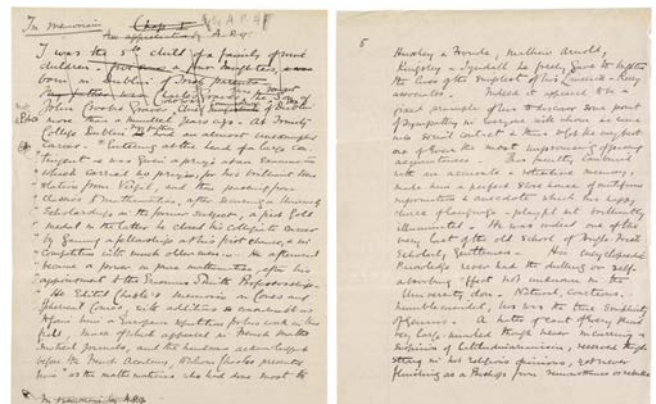 In memoriam
An appreciation by A.P.G.
I was the 5th child of a family of nine
children. four daughters,
born in Dublin of Irish parents.
My father was Charles Graves the Son of
John Crosbie Graves, Chief Magistrate of Dublin
more than a hundred years ago. At Trinity
College Dublin my father had an almost unexampled
career. "Entering at the head of a large con-
tingent he was given a prize at an Examination
which carried no prizes, for his brilliant trans
lation from Virgil, and then passing from
classics to Mathematics, after securing a University
Scholarship in the former subject, a first Gold
medal in the latter he closed his Collegiate career
by gaining a fellowship at his first chance, & in
Competition with much older men. He afterward
became a power in pure mathematics, after his
appointment to the Erasmus Smith Professorship.
"He Edited Chasles's Memoirs on Cones and
Spherical Conics, with additions so considerable as
to gain him a European reputation for his work in this
field. Much of which appeared in French Mathe
matical Journals, and the handsome acknowledgment
before the French Academy, Michel Chasles presented
him "as the mathematician who had done most to
In memoriam by A.P.G.
5
Huxley & Froude, Matthew Arnold,
Kingsley & Tyndall he freely gave to brighten
the lives of the simplest of his Limerick & Kerry
associates. Indeed it appeared to be a
fixed principle of his to discover some point
of sympathy in everyone with whom he came
into social contact & thus to get the very best
out of even the most unpromising of passing
acquaintances. This faculty, combined
with an accurate & retentive memory,
made him a perfect store house of multifarious
information & anecdote which his happy
choice of language & playful wit brilliantly
illuminated. He was indeed one of the
very last of the old School of Anglo-Irish
Scholarly Gentlemen. His encyclopaedic
Knowledge never had the dulling or self-
absorbing effect not unknown in the
University don. Natural, courteous,
humbleminded, his was the true simplicity
of Genius. A hater of cant of every kind
very large-minded though never incurring a
suspicion of latitudinarianism, reserved though
strong in his religious opinions, yet never
flinching as a Bishop from remonstrance or rebuke